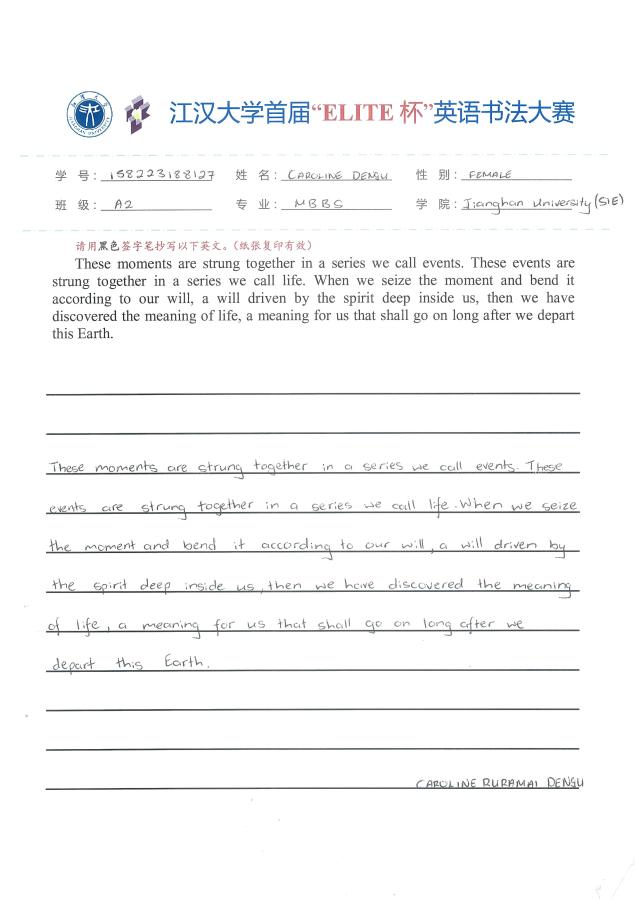 江汉大学首届“ELITE 杯”英语书法大赛
学 号: 158223188127 姓 名: CAROLINE DENGU 性 别: FEMALE
班 级: A2 专 业: MBBS 学 院: Jianghan University (SIE)
请用黑色签字笔抄写以下英文。(纸张复印有效)
These moments are strung together in a series we call events. These events are
strung together in a series we call life. When we seize the moment and bend it
according to our will, a will driven by the spirit deep inside us, then we have
discovered the meaning of life, a meaning for us that shall go on long after we depart
this Earth.
These moments are strung together in a series we call events. These
events are strung together in a series we call life. When we seize
the moment and bend it according to our will, a will driven by
the spirit deep inside us, then we have discovered the meaning
of life, a meaning for us that shall go on long after we
depart this Earth.
CAROLINE RURAMAI DENGU